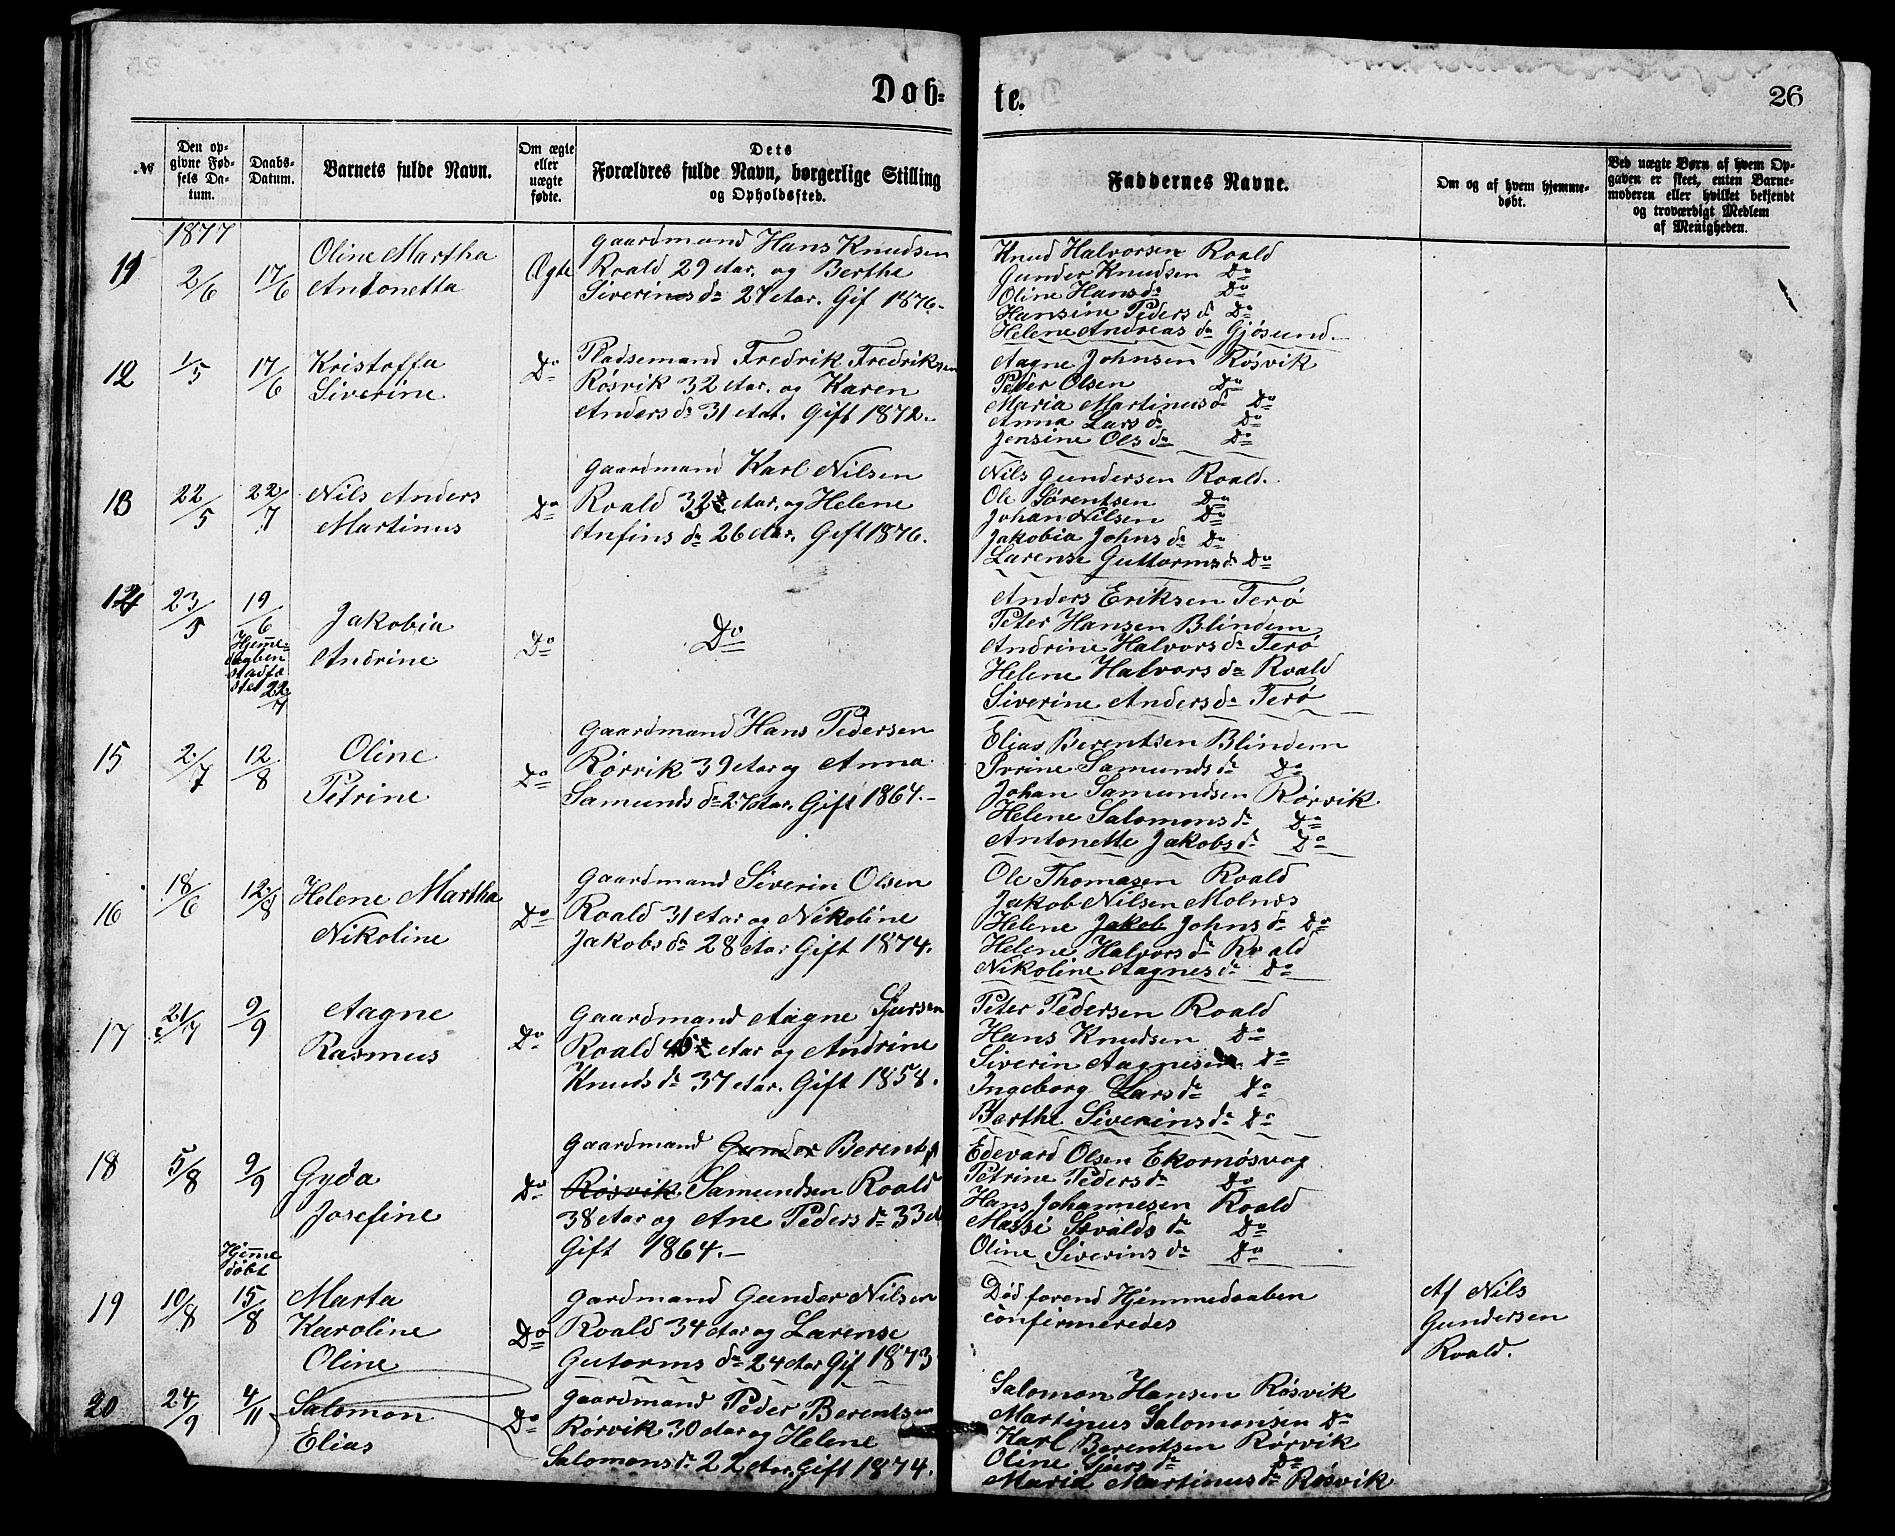 Døb=
te.
26
№
Den op-
givne Fød-
sels Da-
tum.
Daabs-
Datum.
Barnets fulde Navn.
Om ægte
eller
uægte
fødte.
Dets
Forældres fulde Navn, borgerlige Stilling
og Opholdssted.
Faddernes Navne.
Om og af hvem hjemme-
døbt.
Ved uægte Børn af hvem Op-
gaven er skeet, enten Barne-
moderen eller hvilket bekjendt
og troværdigt Medlem
af Menigheden.
1877
11
2/6
17/6
Oline Martha
Antonetta
Ægte
gaardmand Hans Knudsen
Roald 29 Aar. og Berthe
Siverins dr 27 Aar. Gif 1876.
Knud Halvorsen Roald
Gunder Knudsen Do
Oline Hans dr Do
Hansine Peders d Do
Helene Andreas dr Gjøsund
12
1/5
17/6
Kristoffa
Siverine
Do
Pladsemand Fredrik Fredriksen
Røsvik 32 Aar. og Karen
Anders dr 31 Aar. Gift 1872.
Aagne Johnsen Røsvik
Peder Olsen Do
Maria Martinus dr Do
Anna Lars dr Do
Jensine Ols dr Do
13
22/5
22/7
Nils Anders
Martinus
Do
gaardmand Karl Nilsen
Roald 32 Aar. og Helene
Anfins dr 26 Aar. Gift 1876.
Nils Gundersen Roald.
Ole Sørentsen Do
Johan Nilsen Do
Jakobia Johns dr Do
Larense Guttorms dr Do
14
23/5
19/6
Hjemme=
daaben
stadfæ
stet 22/7
Jakobia
Andrine
Do
Do
Anders Eriksen Terø
Peter Hansen Blindem
Andrine Halvors dr Terø
Helene Halvors dr Roald
Siverine Anders dr Terø
15
2/7
12/8
Oline
Petrine
Do
gaardmand Hans Pedersen
Rørvik 39 Aar og Anna
Samunds dr 27 Aar. Gift 1864.
Elias Berentsen Blindem
Ivrine Samunds dr Do
Johan Samundsen Rørvik
Helene Salomons dr Do
Antonette Jakobs dr Do
16
18/6
12/8
Helene Martha
Nikoline
Do
gaardmand Siverin Olsen
Roald 31 Aar og Nikoline
Jakobs dr 28 Aar Gift 1874.
Ole Thomasen Roald
Jakob Nilsen Molnes
Helene Jakob Johns dr Do
Helene Halvors dr Roald
Nikoline Aagnes dr Do
17
21/7
9/9
Aagne
Rasmus
Do
gaardmand Aagne Sjursen
Roald Aar og Andrine
Knuds dr 37 Aar. Gift 1858.
Peter Pedersen Roald
Hans Knudsen Do
Siverin Aagnesen Do
Ingeborg Lars dr Do
Berthe Siverins dr Do
18
5/8
9/9
Gyda
Josefine
Do
gaardmand Gunder Berent
Røsvik Samundsen Roald
38 Aar og Ane Peders dr 33 A
Gift 1864.
Edevard Olsen Ekornøsvog
Petrine Peders dr Do
Hans Johannesen Roald
Massi Sevalds dr Do
Oline Siverins dr Do
19
10/8
Hjemme
døbt
15/8
Marta
Karoline
Oline
Do
gardmand Gunder Nilsen
Roald 34 Aar og Larense
Gutorms dr 24 Aar Gif 1873
Død forend Hjemmedaaben
confirmeredes
Af Nils
Gundersen
Roald.
20
24/9
4/11
Salomon
Elias
Do
gaardmand Peder Berentsen
Rørvik 30 Aar og Helene
Salomons dr 22 Aar. Gift 1874.
Salomon Hansen Røsvik
Martinus Salomonsen Do
Karl Berentsen Rørvik
Oline Sjurs dr Do
Maria Martinus dr Røsvik